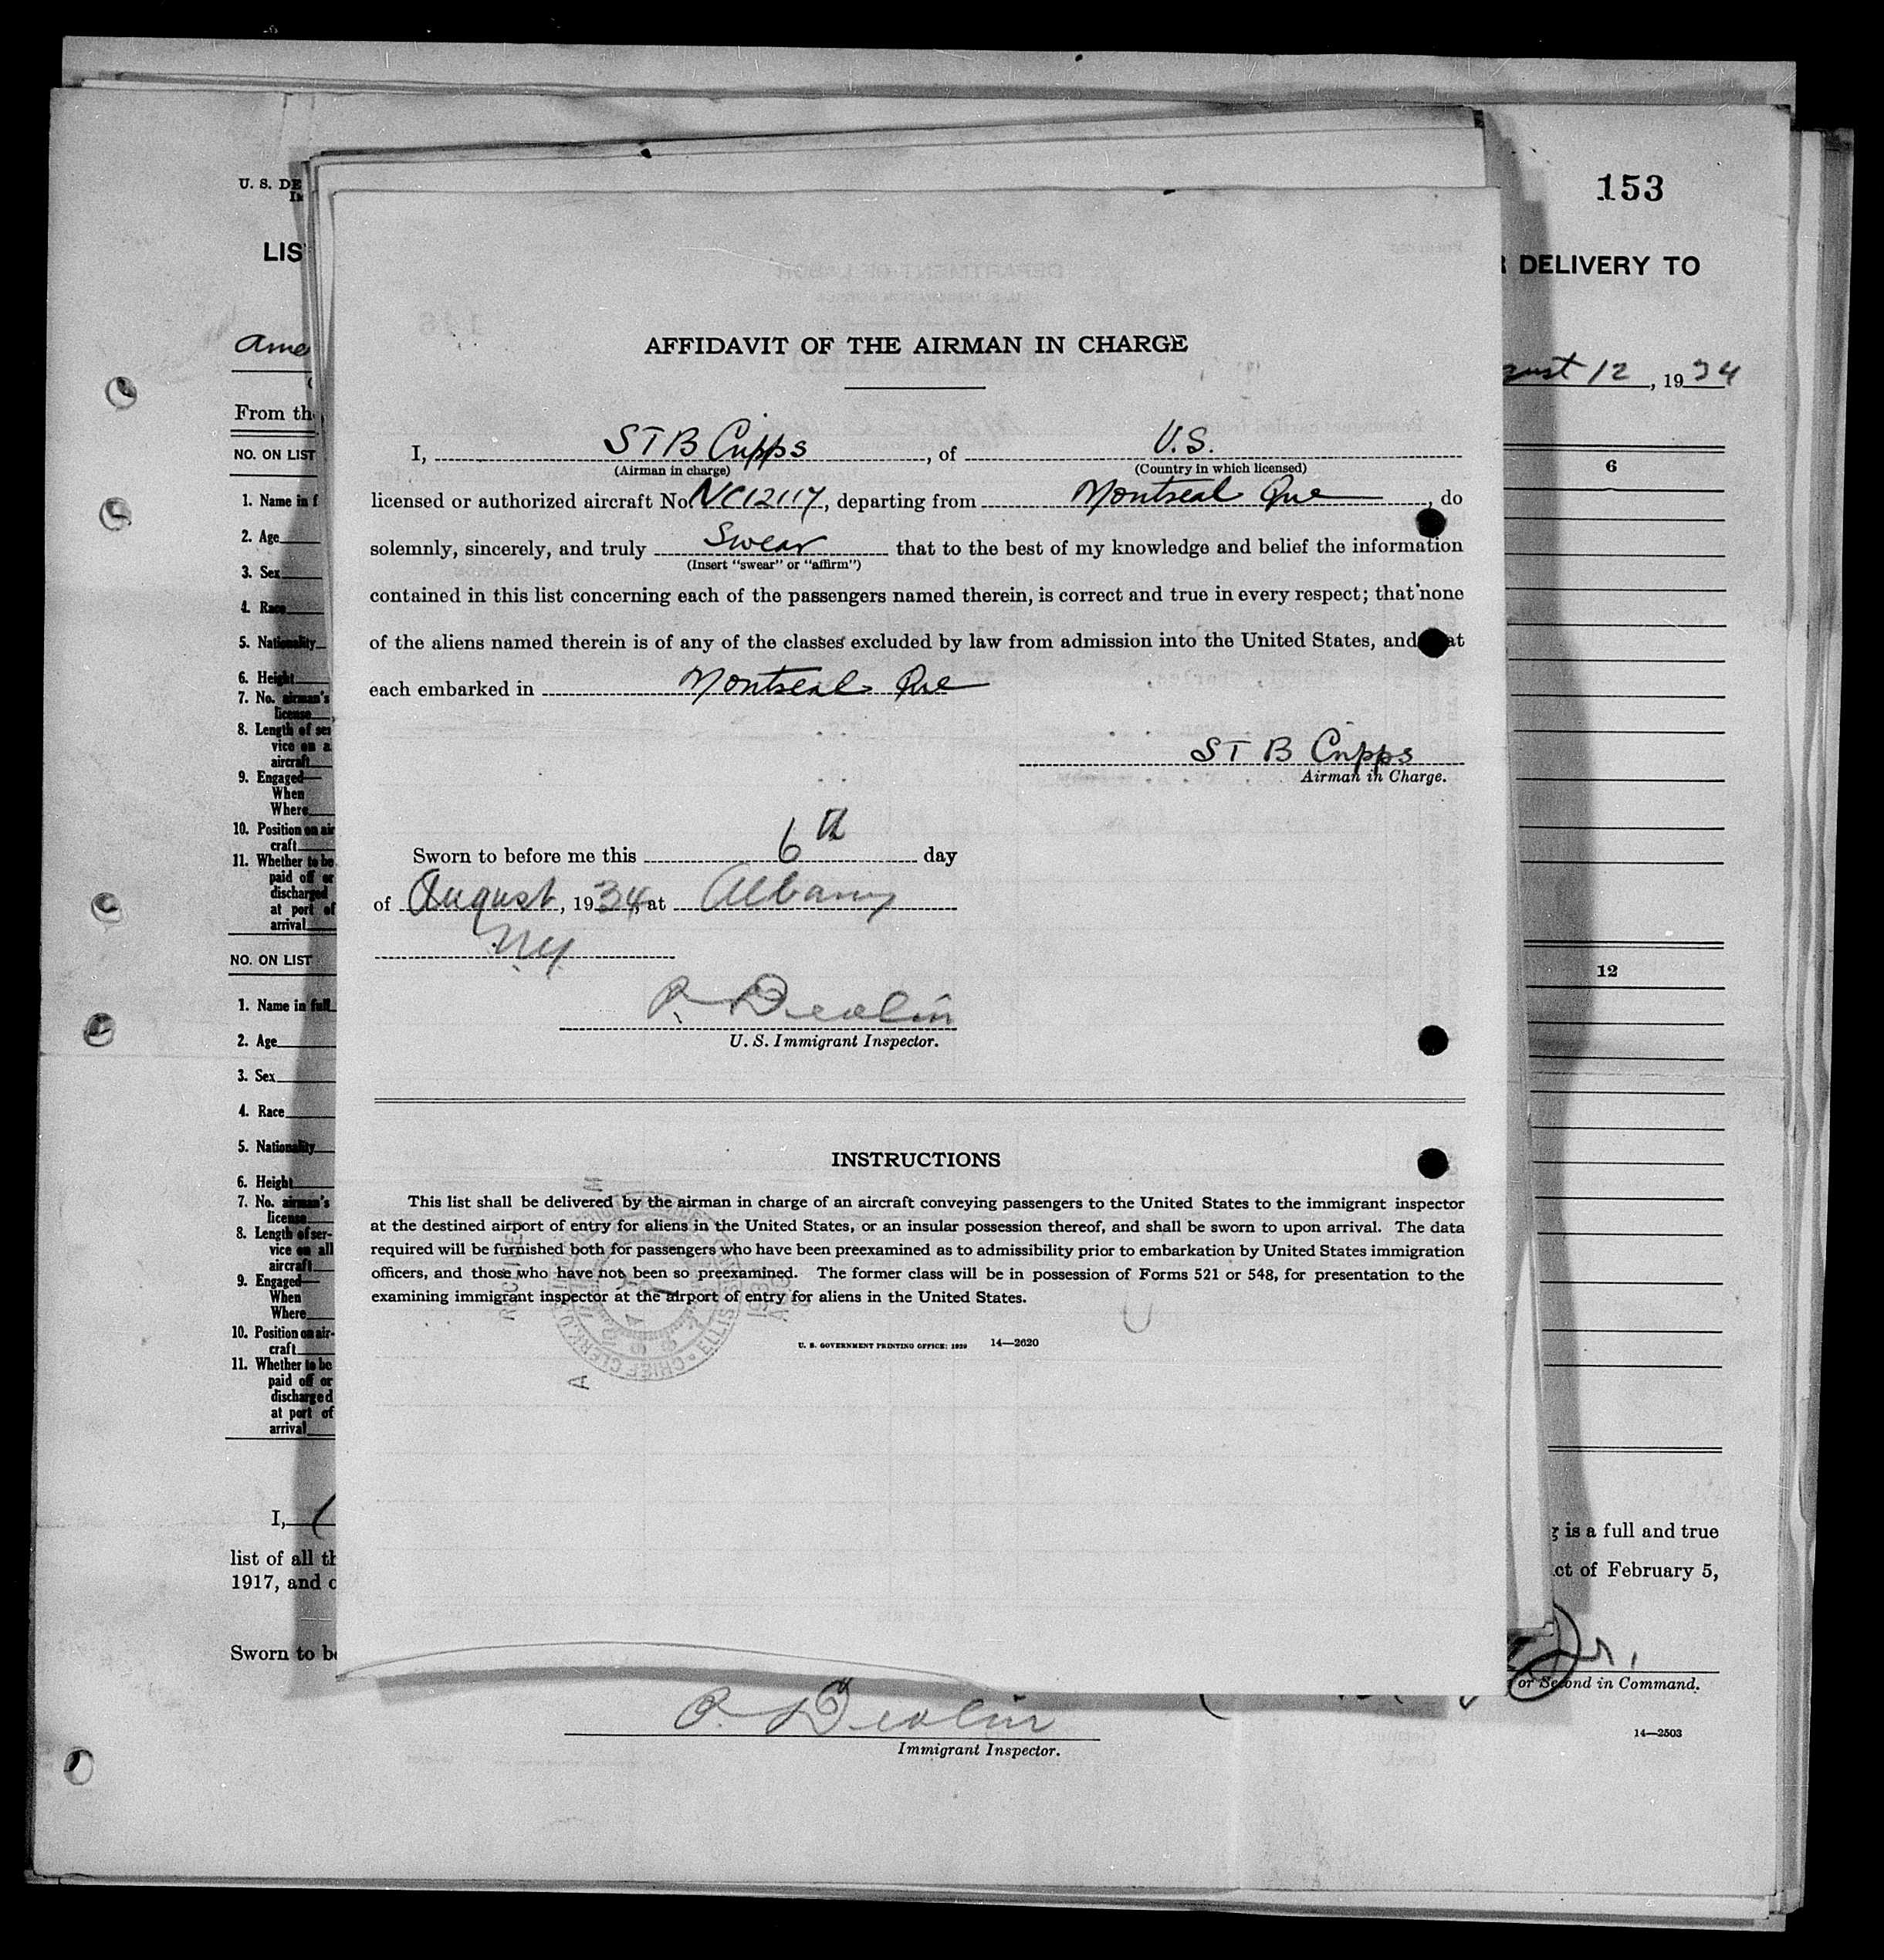 153
U. S. DE
LIS
DELIVERY TO
Ame
gust 12, 1934
From th
NO. ON LIST
6
1. Name in f
2. Age
3. Sex
4. Race
5. Nationality
6. Height
7. No. airman's
license
8. Length of ser
vice on a
aircraft
9. Engaged—
When
Where
10. Position on air
craft
11. Whether to be
paid off or
discharged
at port of
arrival
NO. ON LIST
12
1. Name in full
2. Age
3. Sex
4. Race
5. Nationality
6. Height
7. No. airman's
license
8. Length of ser-
vice on all
aircraft
9. Engaged—
When
Where
10. Position on air-
craft
11. Whether to be
paid off or
discharged
at port of
arrival
I,
is a full and true
list of all th
ct of February 5,
1917, and c
Sworn to be
Jr.
or Second in Command.
P. Devlin
Immigrant Inspector.
14—2503
AFFIDAVIT OF THE AIRMAN IN CHARGE
I, S T B Cripps, of U.S.
(Airman in charge) (Country in which licensed)
licensed or authorized aircraft No. NC12117, departing from Montreal Que, do
solemnly, sincerely, and truly Swear that to the best of my knowledge and belief the information
(Insert "swear" or "affirm")
contained in this list concerning each of the passengers named therein, is correct and true in every respect; that none
of the aliens named therein is of any of the classes excluded by law from admission into the United States, and at
each embarked in Montreal Que
S T B Cripps
Airman in Charge.
Sworn to before me this 6th day
of August, 1934, at Albany
NY
P. Devlin
U. S. Immigrant Inspector.
INSTRUCTIONS
This list shall be delivered by the airman in charge of an aircraft conveying passengers to the United States to the immigrant inspector
at the destined airport of entry for aliens in the United States, or an insular possession thereof, and shall be sworn to upon arrival. The data
required will be furnished both for passengers who have been preexamined as to admissibility prior to embarkation by United States immigration
officers, and those who have not been so preexamined. The former class will be in possession of Forms 521 or 548, for presentation to the
examining immigrant inspector at the airport of entry for aliens in the United States.
U. S. GOVERNMENT PRINTING OFFICE: 1929 14—2620